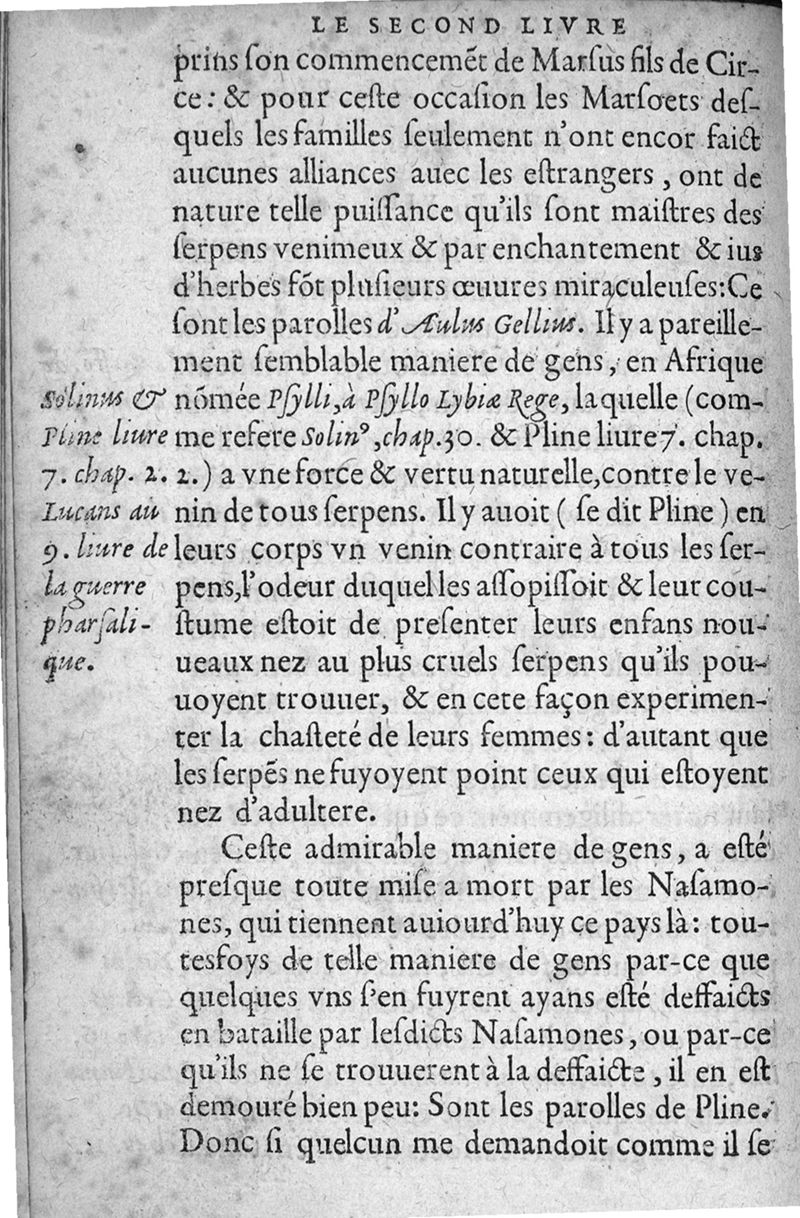 LE SECOND LIVRE
prins ſon commencemẽt de Marſus fils de Cir-
ce: & pour ceſte occaſion les Marſoets deſ-
quels les familles ſeulement n'ont encor faict
aucunes alliances auec les eſtrangers, ont de
nature telle puiſſance qu'ils ſont maiſtres des
ſerpens venimeux & par enchantement & ius
d'herbes fõt pluſieurs œuures miraculeuſes: Ce
ſont les parolles d' Æulus Gellius. Il y a pareille-
ment ſemblable maniere de gens, en Afrique
nõmée Pſylli, à Pſyllo Lybiæ Rege, laquelle (com-
me refere Solinꝰ, chap. 30. & Pline liure 7. chap.
2.) a vne force & vertu naturelle, contre le ve-
nin de tous ſerpens. Il y auoit ( ſe dit Pline ) en
leurs corps vn venin contraire à tous les ſer-
pens, l'odeur duquel les aſſopiſſoit & leur cou-
ſtume eſtoit de preſenter leurs enfans nou-
ueaux nez au plus cruels ſerpens qu'ils pou-
uoyent trouuer, & en cete façon experimen-
ter la chaſteté de leurs femmes: d'autant que
les ſerpẽs ne fuyoyent point ceux qui eſtoyent
nez d'adultere.
Ceſte admirable maniere de gens, a eſté
preſque toute miſe a mort par les Naſamo-
nes, qui tiennent auiourd'huy ce pays là: tou-
tesfoys de telle maniere de gens par-ce que
quelques vns ſ'en fuyrent ayans eſté deffaicts
en bataille par leſdicts Naſamones, ou par-ce
qu'ils ne ſe trouuerent à la deffaicte, il en eſt
demouré bien peu: Sont les parolles de Pline.
Donc ſi quelcun me demandoit comme il ſe
Solinus &
Pline liure
7. chap. 2.
Lucans au
9. liure de
la guerre
pharſali-
que.